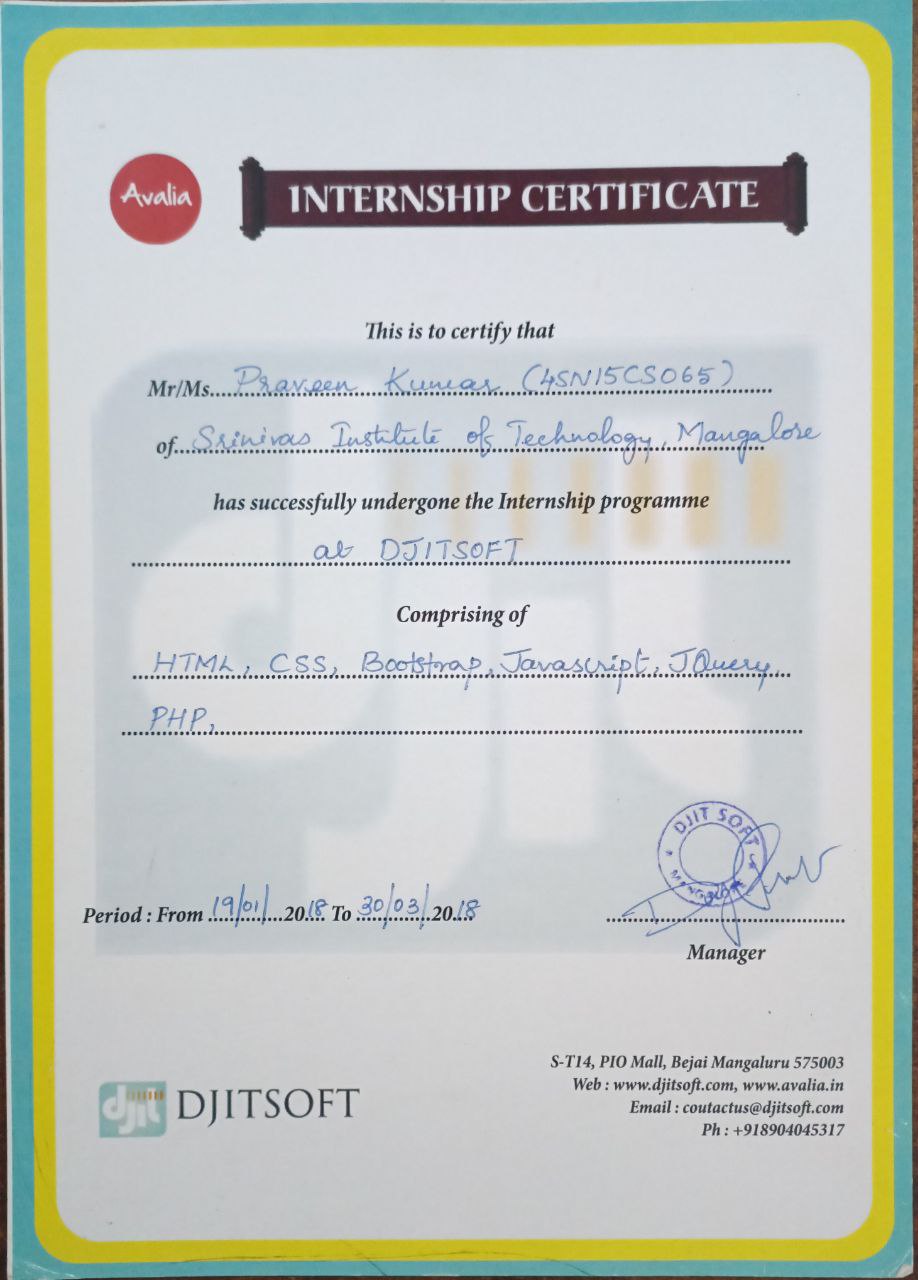 Avalia
INTERNSHIP CERTIFICATE
This is to certify that
Mr/Ms. Praveen Kumar (4SN15CS065)
of Srinivas Institute of Technology, Mangalore
has successfully undergone the Internship programme
at DJITSOFT
Comprising of
HTML, CSS, Bootstrap, Javascript, JQuery,
PHP,
DJIT SOFT
MANGALORE
Period : From 19/01/2018 To 30/03/2018
Manager
S-T14, PIO Mall, Bejai Mangaluru 575003
Web : www.djitsoft.com, www.avalia.in
Email : coutactus@djitsoft.com
Ph : +918904045317
djit DJITSOFT